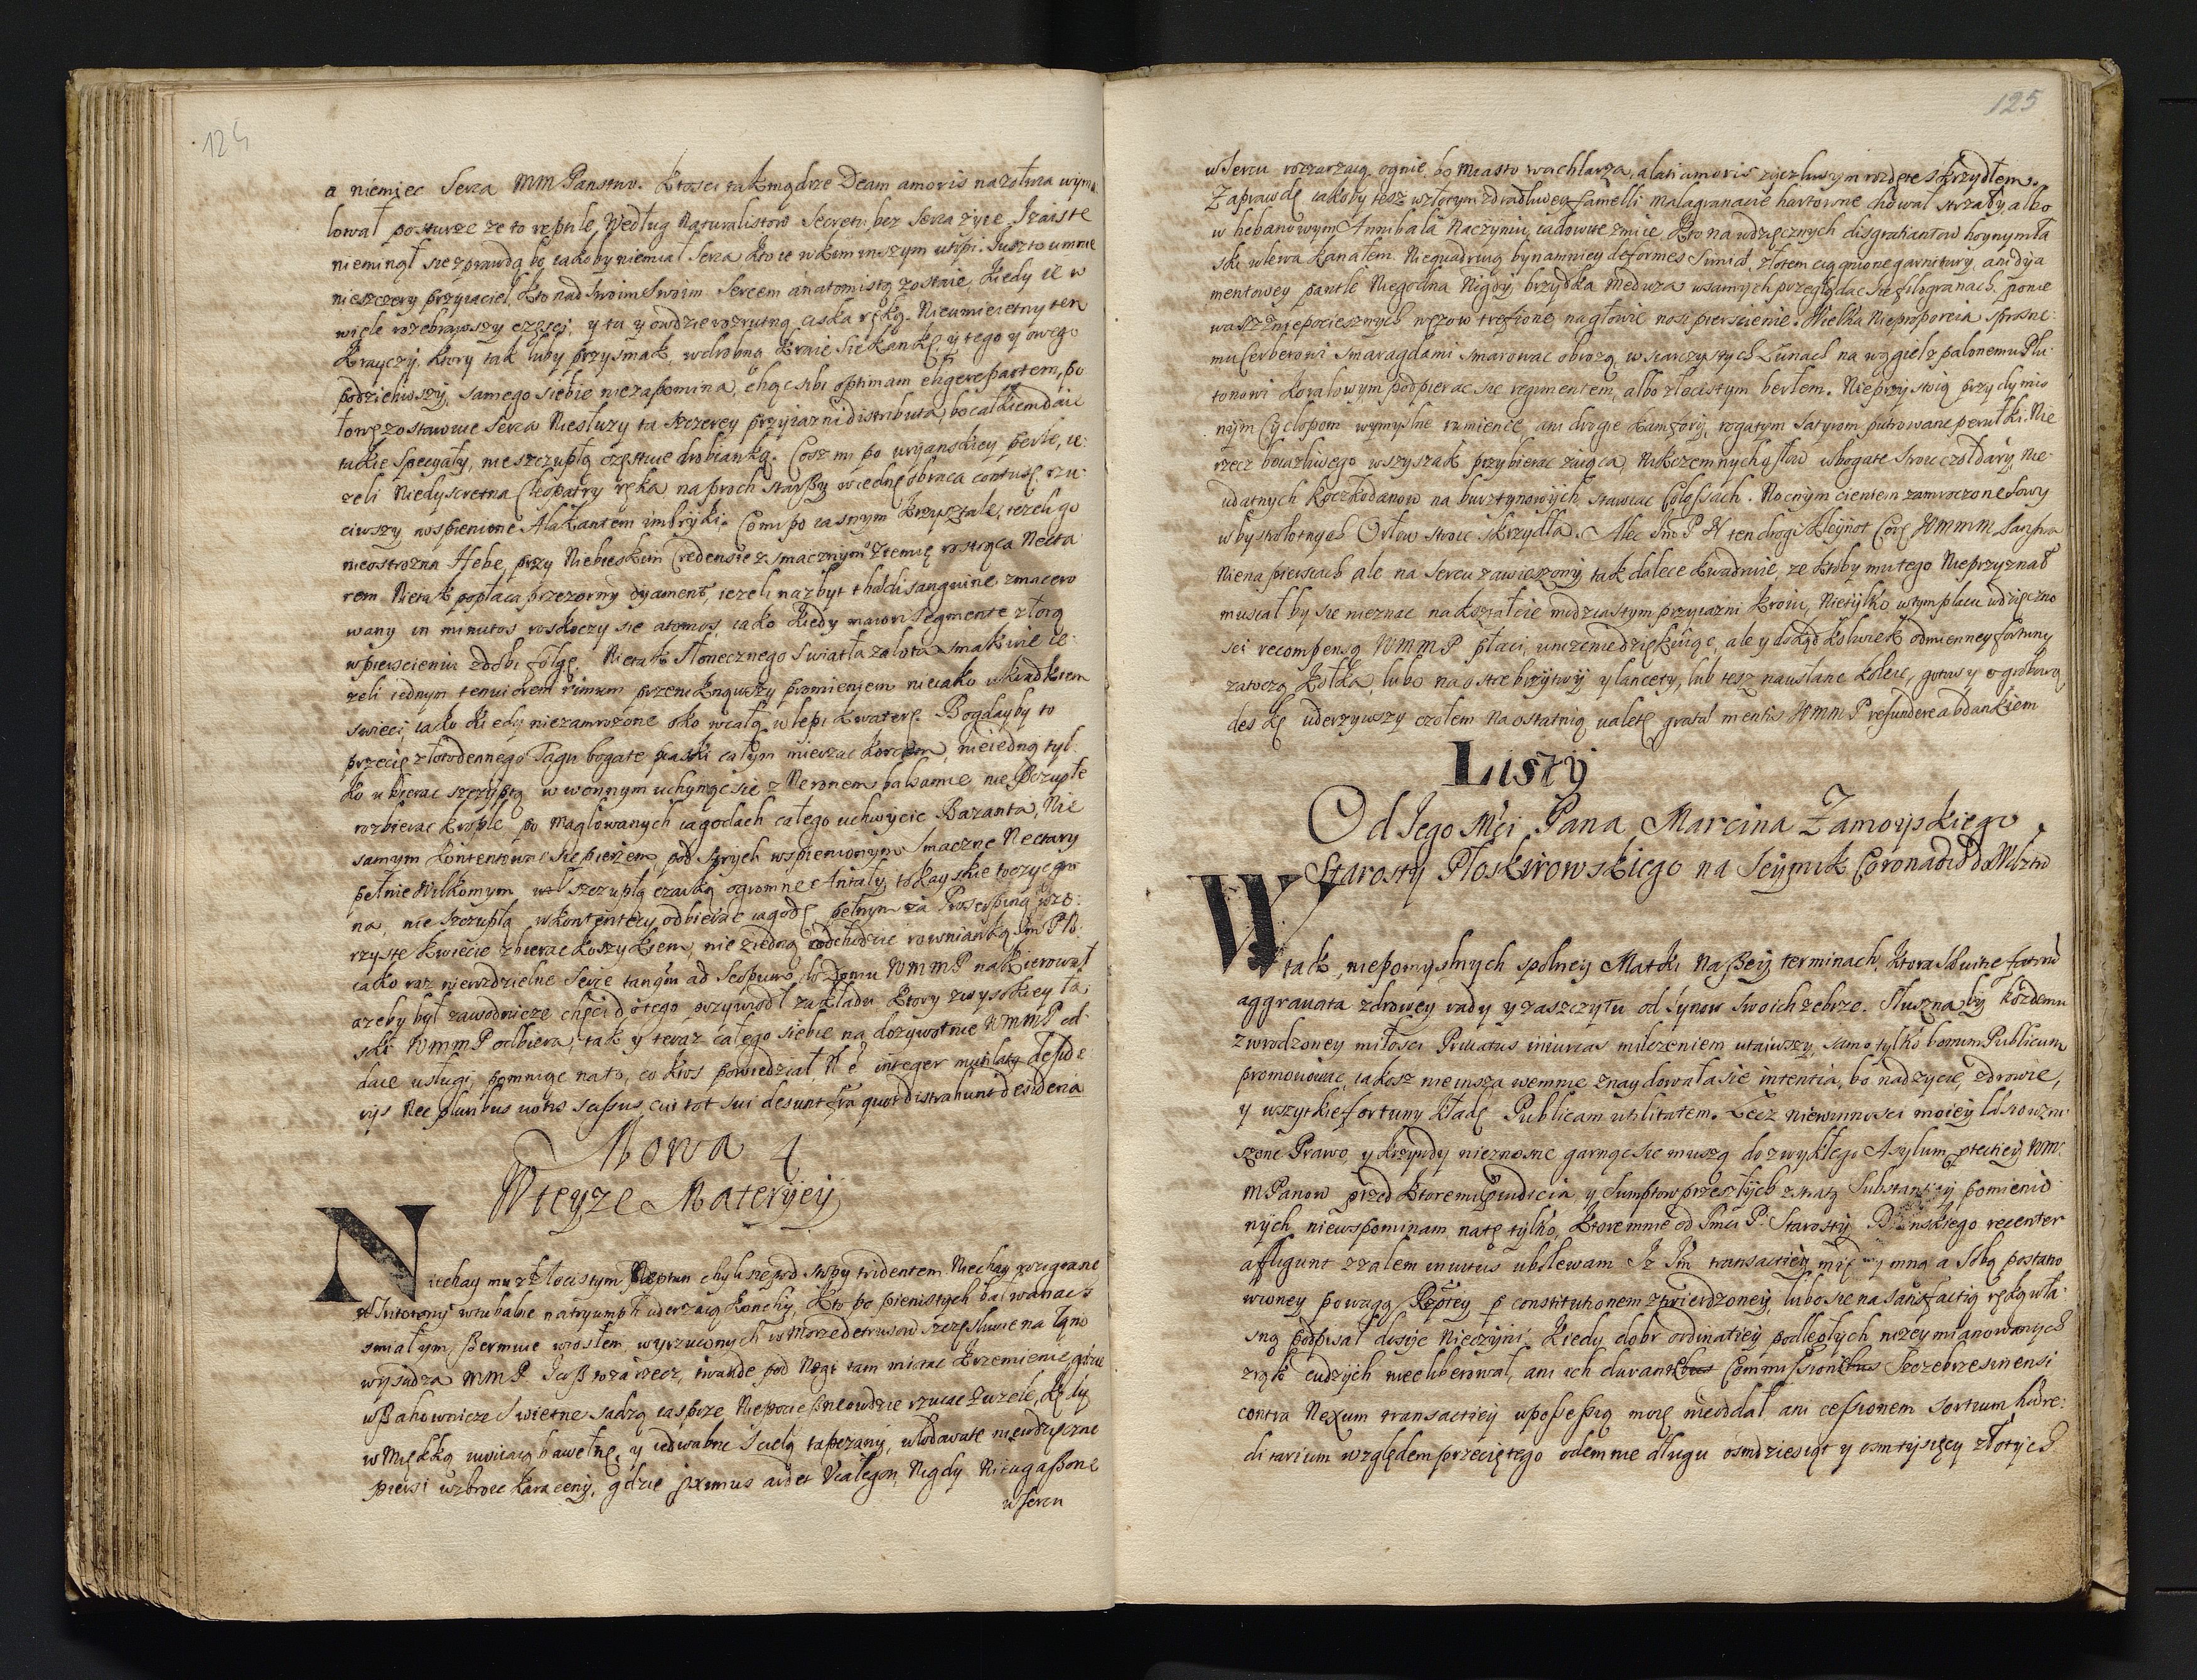 124
a niemiec Serca MM Panstwu. Ktosci tak mądrze Deam amoris na zołwia wyma
lował posturze ze to reptile, Według Naturalistow Secretu bez Serca zyie, Iziste
nieminął sie z prawdą bo iakoby niemiał Serca kto ie w kim inszym utopi. Iusz to u mnie
nieszczery przyiaciel, kto nad swoim Swoim Sercem anatomistą zostaie, kiedy ie w
wiele rozebrawszy części, y tu y owdzie rozrutną ciska ręką. Nieumieietny ten
Krayczy, ktory tak luby przysmak w drobną kraie siekankę, y tego y owego
podzieliwszy, samego siebie niezapomina, chcąc sibi optimam eligere partem, po
łowę zostawuie Serca Niesłuzy ta szczerey przyiazni distributa, bo całkiem daie
takie specyały, nie szczupłą częstuie drobianką. Cosz mi po uryanskiey perle, ie:
zeli Niedyscretna Cleopatry ręka na proch starszy w iednę obraca contusę, rzu:
ciwszy w spienione Alakantem imbryki. Co mi po iasnym krzysztale, iezeli go
nieostrozna Hebe, przy Niebieskim Credensie z smacznym o ziemię roztrąca Necta
rem Nietak popłaca przezorny dyament, iezeli nazbyt tholdi sanguine zmacero
wany in minutos roskoczy sie atomos, iako kiedy maiori segmente złotą
w pierscieniu zdobi folgę. Nietak Słonecznego Swiatła zalota smakuie ie:
zeli iednym tenuiorem rimam przeniknąwszy promieniem nieiako ukradkiem
swieci, iako kiedy niezamrozone oko w całą wlepi kwaterę. Bogdayby to
przecię złotodennego Tagu bogate piaski całym mierzać korcem, nieiedną tyl
ko ubierać szczyptą w wonnym uchynąć sie z Neronem balsamie, nie szczupłe
rozbierac krople, po maglowanych iagodach całego uchwycic Bazanta, Nie
samym kontentować sie pierzem, pod strych wspienionym smaczne Nectary
pełnic Wilkomym szczupłą czarką ogromne Antały, tokayskie toczyc wi
na, nie szczupłą w kontentecy odbierac iagodę, pełnym za Proserpiną wzo:
rzyste kwiecie zbierac koszykiem, nie ziedną odchodzic rownianką. Im P N
iako raz nierozdzielne Serce tanqm ad Scopum do Domu WMMP nakierował
azeby był zawodnicze chęci do tego przywiodł zakładu ktory z wysokiey ła:
ski WMMP odbiera, tak y teraz całego siebie na dozywotnie WMMP od:
daie usługi, pomniąc na to, co ktos powiedział, integer mutilatę deside:
rijs Nec pluribus votis scissus, cui tot sui desunt fra quot distrahunt desideria
Mowa 4
W teyze Materyey
Niechay mu z złocistym Neptun chyli sie pod stopy tridentem Niechay rozigrane
Tritony w tubalne na tryumph uderzaią konchy, kto po pienistych bałwanach
smiałym szermuie wiosłem, wyrzuconych w Morze detrusow szczęsliwie na łono
wysadza MMP Iusz to za rzecz, twarde pod Nogi tam miotac krzemienie, gdzie
w Szahownicze Swietne sadzą iaspize Niepociesne owdzie rzucac zuzele, kędy
w Miękką uwiiaią bawełnę, y iedwabne scielą tapezany, w lodowate niewdzięczne
piersi uzbroic karaceny, gdzie primus ardet Ucalegon, Nigdy Nieugaszone
w Sercu
125
w Sercu rozzarzaią ognie, bo miasto wachlarza, alati amoris zyczliwym rozdęte skrzydłem.
Zaprawdę iakoby tesz w złotym zdradliwey famelli malagranacie hartowne chował strzały, albo
w hebanowym Annibala Naczyniu, iadowite zmiie. Kto na wdzięcznych disgratiantow hoynym ła
ski wlewa kanałem. Niequadruią bynamniey deformes Simiae, złotem ciągnione garnitury, ani dya
mentowey pantle Niegodna Nigdy brzydka Meduza w samych przeglądac sie filogranach, ponie
wasz z niepociesznych węzow trefione na głowie nosi pierscienie. Wielka Nieproporcia sprosne:
mu Cerberowi smaragdami smarowac obrozą, w siarczystych Łunach na węgiel zpalonemu Plu:
tonowi koralowym podpierac sie regimentem, albo złocistym berłem. Nieprzystoią przydymio
nym Cyclopom wymyslne rumience, ani drogie kamfory, rogatym Satyrom putrowane perułki. Nie
rzecz boiazliwego w szyszak przybierac zaiąca Nikczemnych osłow w bogate stroic czołdary, Nie:
udatnych koczkodanow na bursztynowych stawiac Colossach. Nocnym cieniem zamroczone sowy
w bystrolotnych Orłow stroic skrzydła. Alec Im P N ten drogi kleynot Corę WMMM Lanpwa
Niena piersiach ale na sercu zawieszony, tak dalece kwadruie, ze ktoby mu tego Nieprzyznał
musiał by sie nieznac na kształcie miedziastym przyiazni kroiu, Nietylko w tym placu wdzięczno
sci recompensą WMMP płaci, uniżenie dziękuiąc, ale y dokąd kolwiek odmienney fortuny
zatoczą kołka, lubo na ostre brzytwy y lancety, lub tesz na usłane koleie, gotow y o grobową
deskę uderzywszy czołem na ostatnią valetę gratia mentis WMMP refundere abdankiem
Listy
Od Iego Mci Pana Marcina Zamoyskiego
Starosty Płoskirowskiego na Seymik Coronacii do Wdztw
W tak niepomyslnych spolney Matki Naszey terminach, ktora sevitie fatorum
aggravata zdrowey rady y zaszczytu od synow swoich zebrze. Słuszna by kozdemu
z wrodzoney miłosci Privatas iniurias milczeniem utaiwszy, samo tylko bonum Publicum
promovowac, iakosz nieinsza wemnie znaydowała sie intentia, bo nad zycie, zdrowie,
y wszytkie fortuny kładę Publicam utilitatem. Lecz niewinnosci moiey
szone Prawo, y krzywdy nieznosne garnąc sie muszą do zwykłego Asylum ptectiey WM:
MPanow przed ktoremi ... y sumptow przeszłych z stratą Substantiey pomienio
nych niewspominam, na te tylko, ktore mnie od Imci P. Starosty ... recenter
affligunt z zalem invitus ubolewam Iz Im transactiey między mną a sobą postano
wioney powagą Rzptey p constitutionem ztwierdzoney, lubo sie na satisfactią ręką wła:
sną podpisał dosyc Nieczyni, kiedy dobr ordinatiey podległych nizey mianowanych
z rąk cudzych nieliberował, ani ich durante Commissione Szczebrzesinensi
contra Nexum transactiey w possessią moię nieoddał ani cessionem sortium haere:
ditarium względem przeciętego odemnie długu osmdziesiąt y osm tysięcy złotych